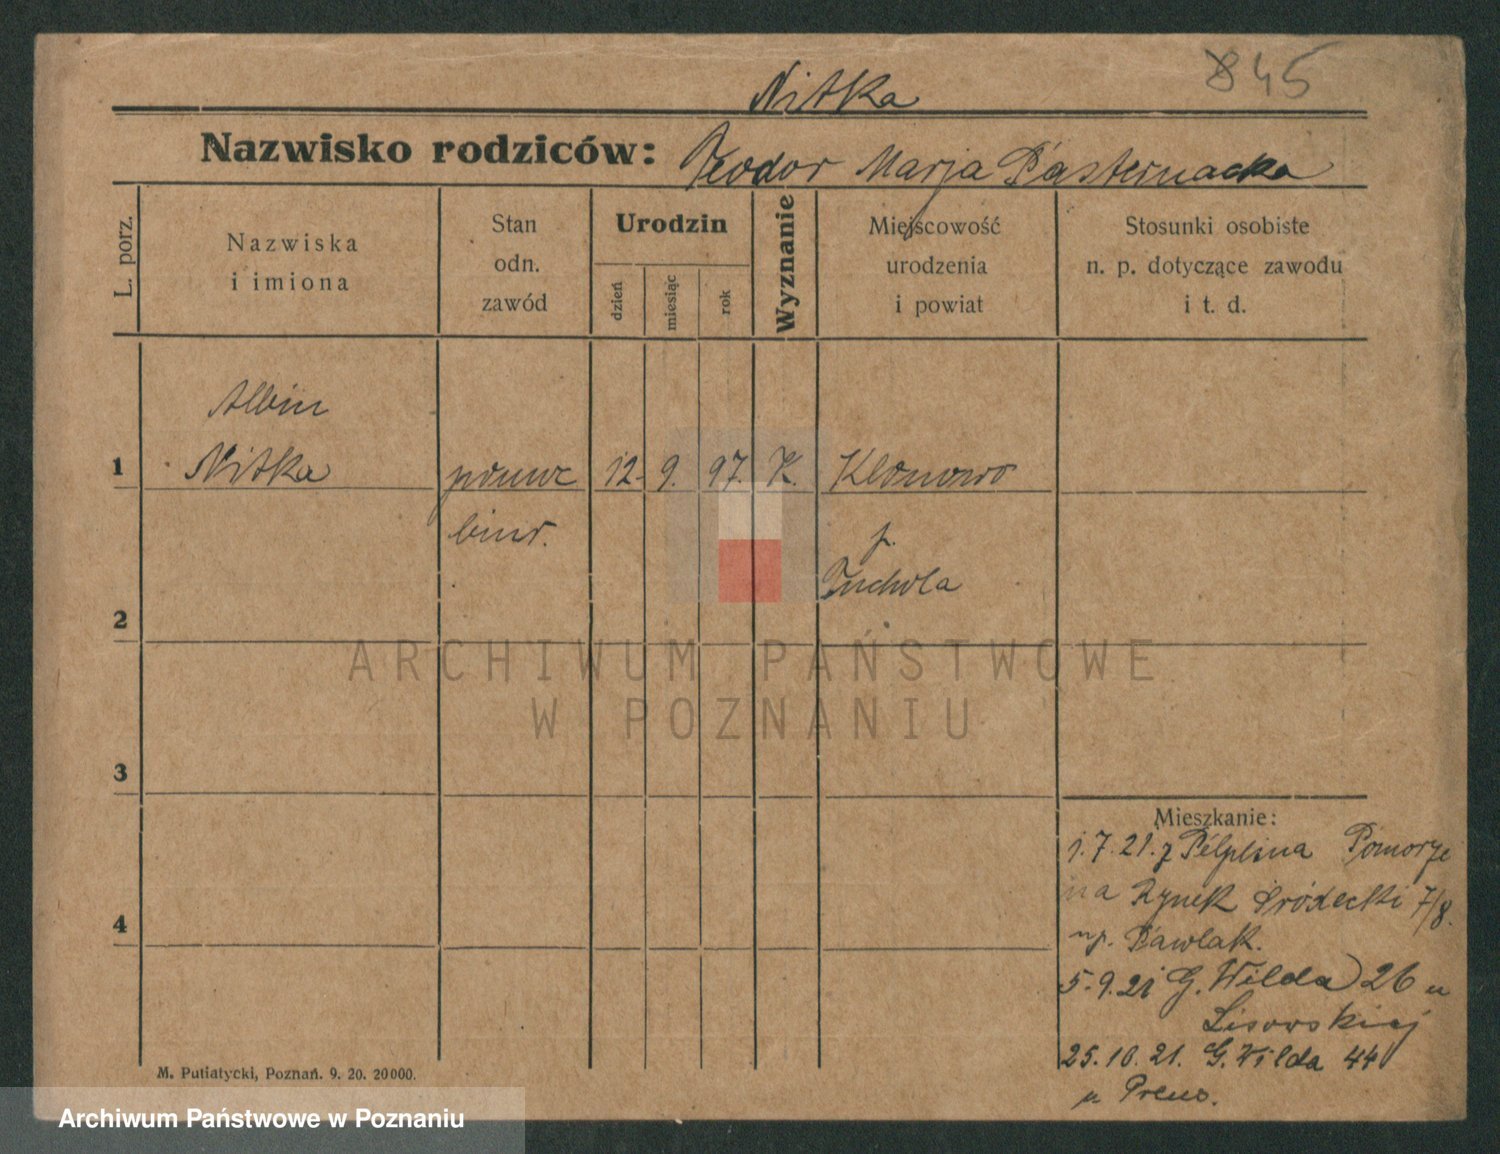 845
Nitka
Nazwisko rodziców: Teodor Marja Pasternacka
L. porz.
Nazwiska
i imiona
Stan
odn.
zawód
Urodzin
dzień
miesiąc
rok
Wyznanie
Miejscowość
urodzenia
i powiat
Stosunki osobiste
n. p. dotyczące zawodu
i t. d.
Albin
1 Nitka 12. 9. 97. K. Klonowo
biur. p.
Tuchola
2
ARCHIWUM PAŃSTWOWE
W POZNANIU
3
Mieszkanie:
1.7.21. z Pelplina Pomorze
na Rynek Śródecki 7/8.
4
np. Pawlak.
5.9.21 G. Wilda 26 u
Lisowskiej
25.10.21. G. Wilda 44
u Preus.
M. Putiatycki, Poznań. 9. 20. 20000.
Archiwum Państwowe w Poznaniu